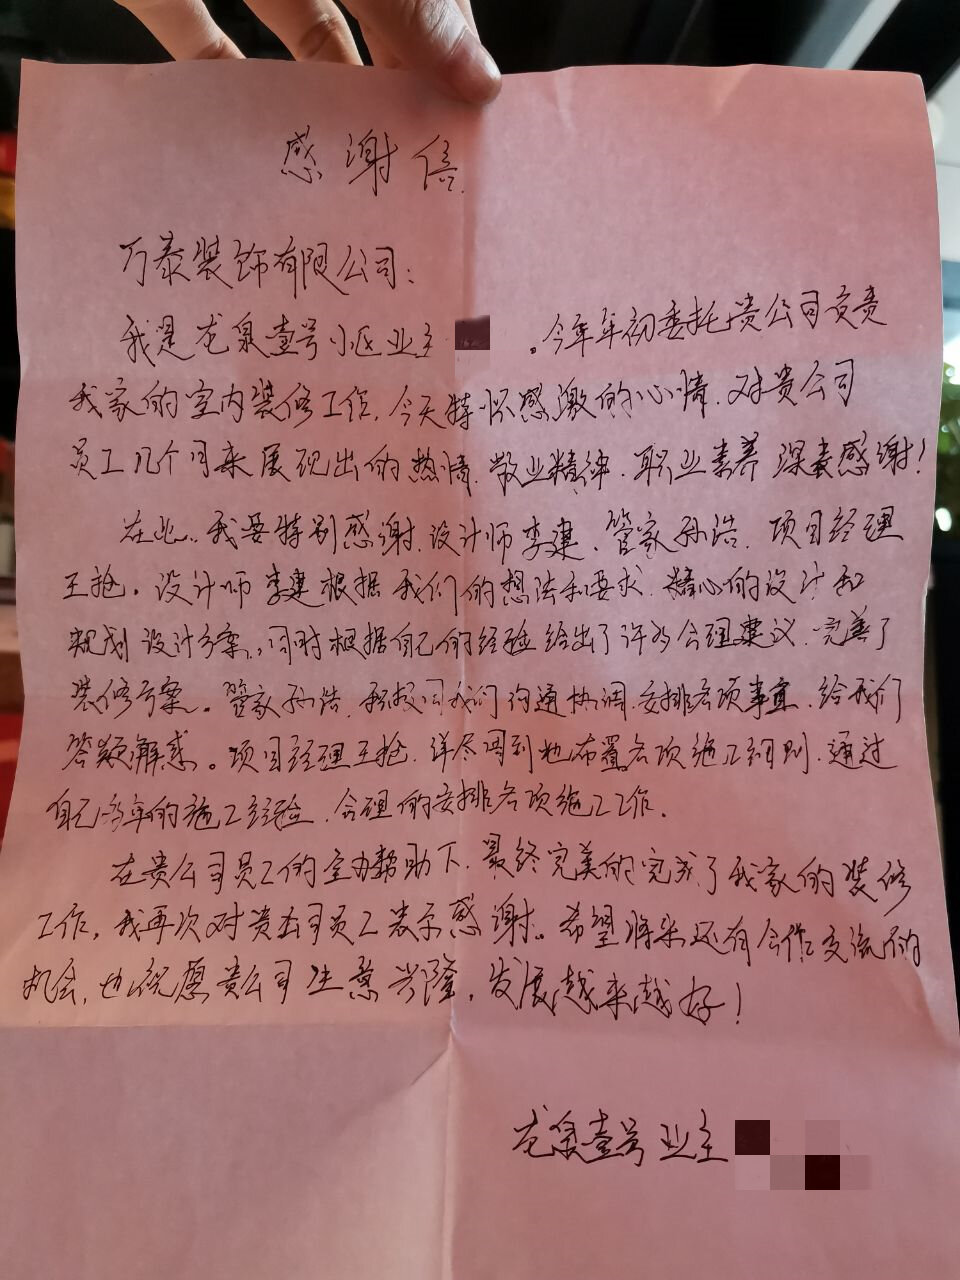 感谢信
万泰装饰有限公司：
我是龙泉壹号小区业主 。今年年初委托贵公司负责
我家的室内装修工作，今天特怀感激的心情，对贵公司
员工几个月来展现出的热情、敬业精神、职业素养深表感谢！
在此，我要特别感谢，设计师李建、管家孙浩、项目经理
王抢。设计师李建根据我们的想法和要求，精心的设计和
规划设计方案，同时根据自己的经验给出了许多合理建议，完善了
装修方案。管家孙浩，积极同我们沟通协调，安排各项事宜，给我们
答疑解惑。项目经理王抢，详尽周到地布置各项施工细则，通过
自己多年的施工经验，合理的安排各项施工工作。
在贵公司员工的全力帮助下，最终完美的完成了我家的装修
工作，我再次对贵公司员工表示感谢。希望将来还有合作交流的
机会，也祝愿贵公司生意兴隆，发展越来越好！
龙泉壹号业主